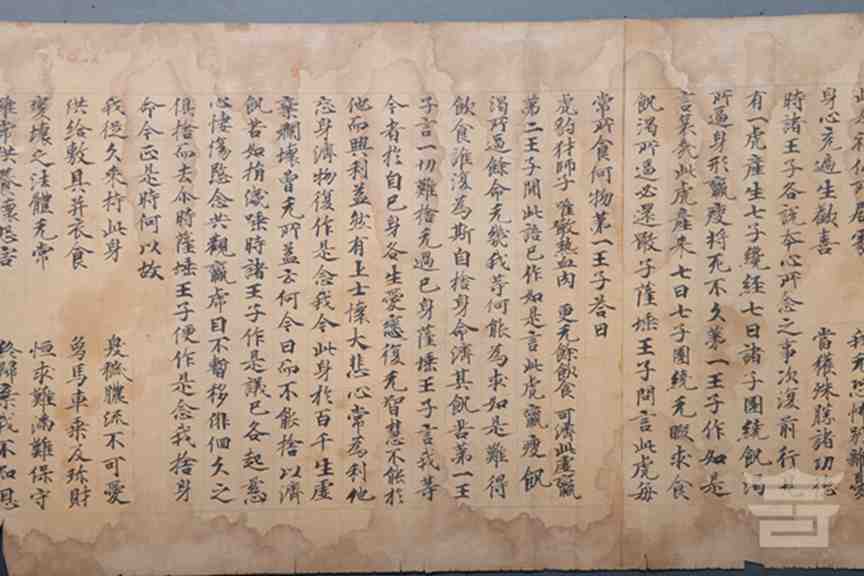 身心充遍生歡喜　當獲殊勝諸功德
時諸王子各說本心所念之事次復前行見
有一虎產生七子纔經七日諸子圍繞飢渴
所逼身形羸瘦將死不久第一王子作如是
言哀哉此虎產來七日七子圍繞无暇求食
飢渴所逼必還噉子薩埵王子問言此虎每
常所食何物第一王子荅曰
虎豹犲師子　唯噉熱血肉　更无餘飲食　可濟此虛羸
第二王子聞此語已作如是言此虎羸瘦飢
渴所逼餘命无幾我等何能為求如是難得
飲食誰復為斯自捨身命濟其飢苦第一王
子言一切難捨无過己身薩埵王子言我等
今者於自己身各生愛戀復无智慧不能於
他而興利益然有上士懷大悲心常為利他
忘身濟物復作是念我今此身於百千生虛
棄爛壞曾无所益云何今日而不能捨以濟
飢苦如捐洟唾時諸王子作是議已各起慈
心悽傷愍念共觀羸虎目不暫移俳佪久之
俱捨而去尒時薩埵王子便作是念我捨身
命今正是時何以故
我從久來持此身　臭穢膿流不可愛
供給敷具并衣食　鳥馬車乘及珎財
變壞之法體无常　恒求難滿難保守
雖常供養懷怨害　終歸棄我不知恩